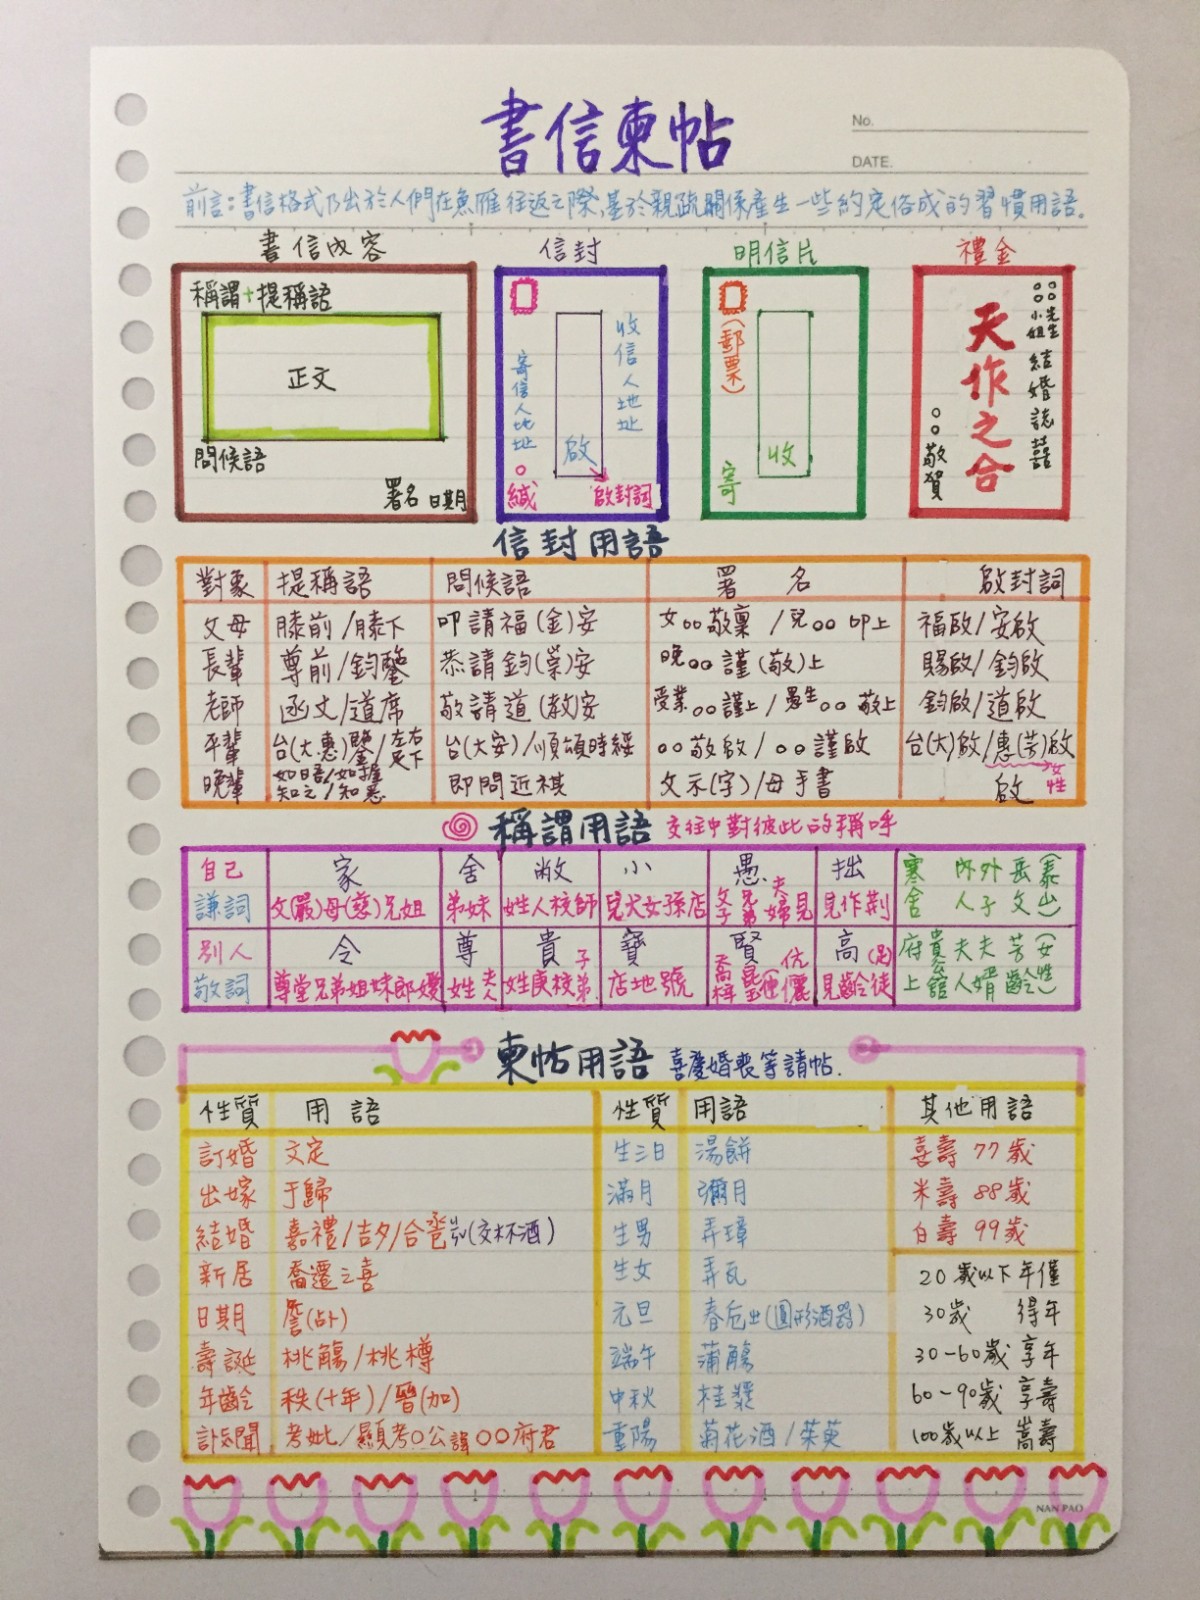 書信柬帖
No.
DATE.
前言:書信格式乃出於人們在魚雁往返之際,基於親疏關係產生一些約定俗成的習慣用語。
書信內容 信封 明信片 禮金
稱謂+提稱語
正文
問候語
署名 日期
收信人地址
啟
寄信人地址
○緘
啟封詞
(郵票)
收
寄
○○先生
○○小姐 結婚誌囍
天作之合
○○敬賀
信封用語
對象 提稱語 問候語 署名 啟封詞
父母 膝前/膝下 叩請福(金)安 女○○敬稟/兒○○叩上 福啟/安啟
長輩 尊前/鈞鑒 恭請鈞(崇)安 晚○○謹(敬)上 賜啟/鈞啟
老師 函丈/道席 敬請道(教)安 受業○○謹上/愚生○○敬上 鈞啟/道啟
平輩 台(大惠)鑒/左右足下 台(大安)/順頌時綏 ○○敬啟/○○謹啟 台(大)啟/惠(芳)啟
女性
晚輩 如晤/如握 知之/知悉 即問近祺 父示(字)/母手書 啟
稱謂用語 交往中對彼此的稱呼
自己 家 舍 敝 小 愚 拙 寒舍 內人 外子 岳丈(泰山)
謙詞 父(嚴)母(慈)兄姐 弟妹 姓人校師 兒犬女孫店 父子 兄弟 夫婦 見 見作荊
別人 令 尊 貴 寶 賢 高(足) 府上 貴館 夫人 夫婿 芳齡(女性)
敬詞 尊堂兄弟姐妹郎嬡 姓夫人 姓庚校子弟 店地號 喬梓 昆 伉儷 見齡徒
柬帖用語 喜慶婚喪等請帖.
性質 用語 性質 用語 其他用語
訂婚 文定 生三日 湯餅 喜壽 77歲
出嫁 于歸 滿月 彌月 米壽 88歲
結婚 嘉禮/吉夕/合巹(交杯酒) 生男 弄璋 白壽 99歲
新居 喬遷之喜 生女 弄瓦 20歲以下 年僅
日期 詹(占) 元旦 春卮(圓形酒器) 30歲 得年
壽誕 桃觴/桃樽 端午 蒲觴 30-60歲 享年
年齡 秩(十年)/晉(加) 中秋 桂漿 60-90歲 享壽
訃聞 考妣/顯考○公諱○○府君 重陽 菊花酒/茱萸 100歲以上 嵩壽
NAN PAO